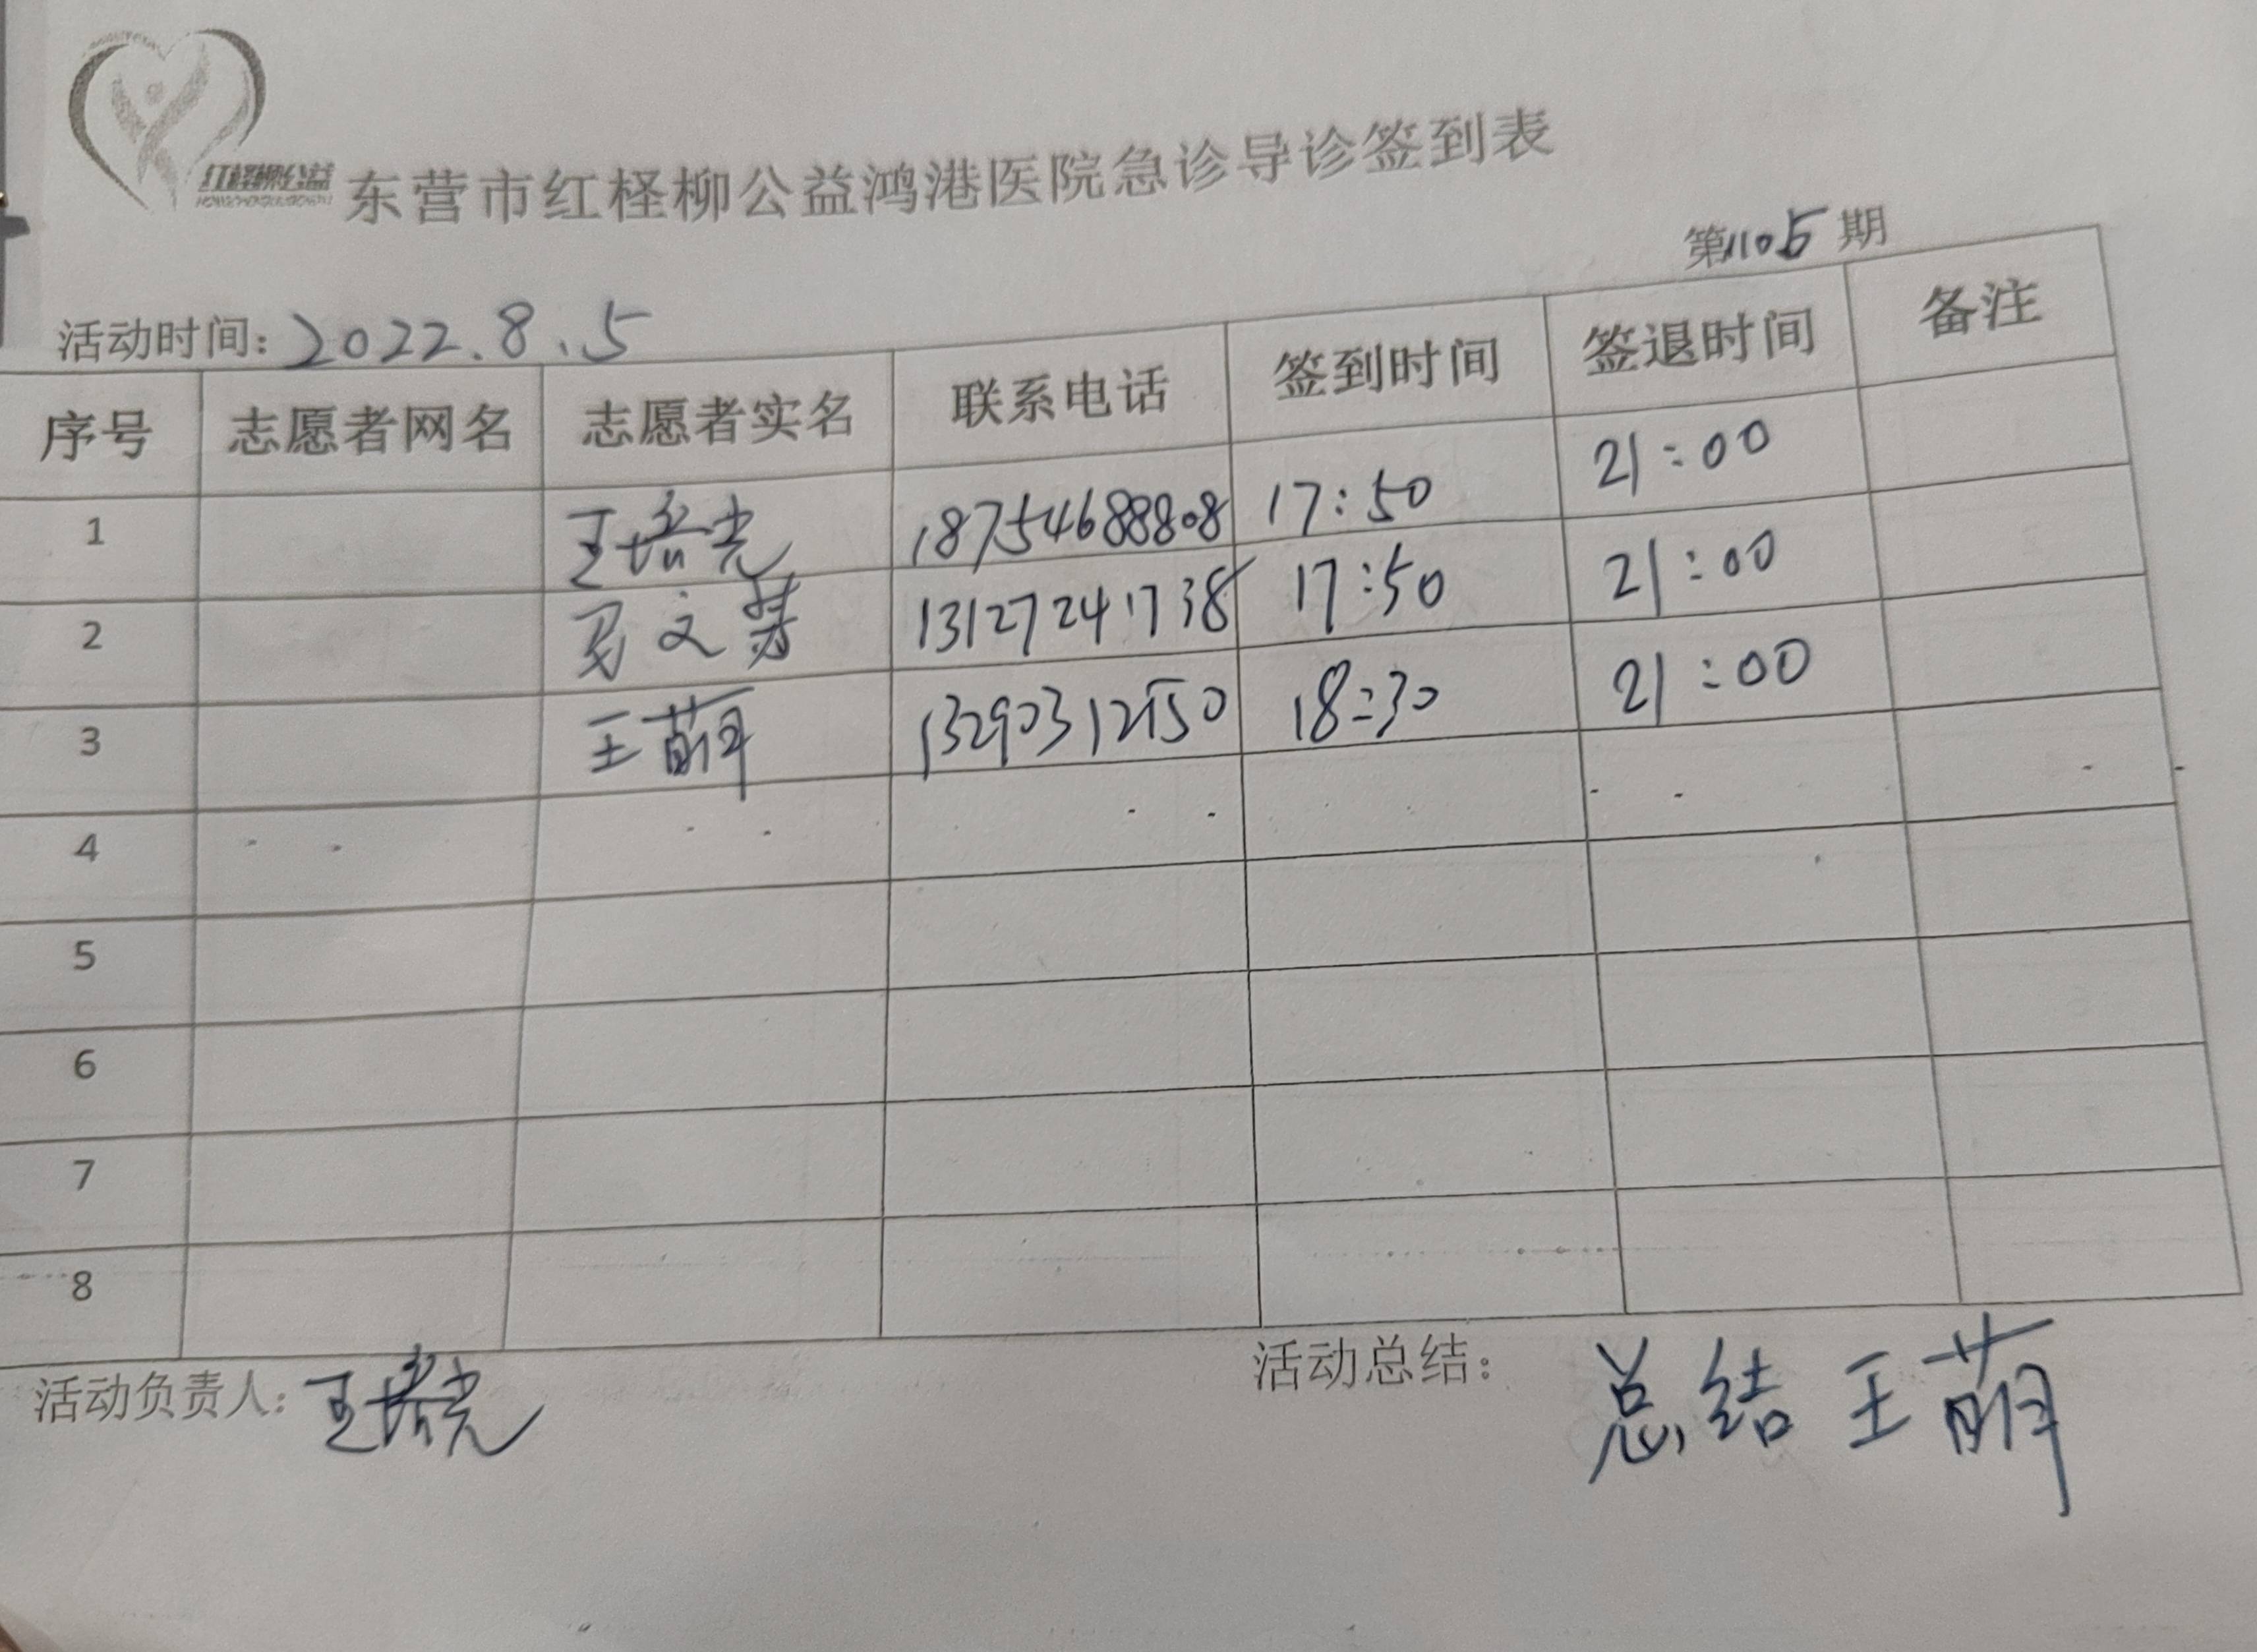 红柽柳公益
东营市红柽柳公益鸿港医院急诊导诊签到表
第1105期
活动时间：2022.8.5
序号 志愿者网名 志愿者实名 联系电话 签到时间 签退时间 备注
1 王培光 18754688808 17:50 21:00
2 文 13127241738 17:50 21:00
3 王萌 13290312150 18:30 21:00
4
5
6
7
8
活动负责人：王培光
活动总结： 总结 王萌